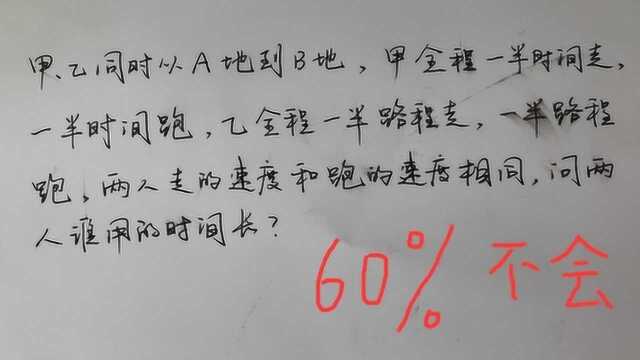 甲、乙同时从A地到B地，甲全程一半时间走，
一半时间跑，乙全程一半路程走，一半路程
跑，两人走的速度和跑的速度相同，问两
人谁用的时间长？
60%不会